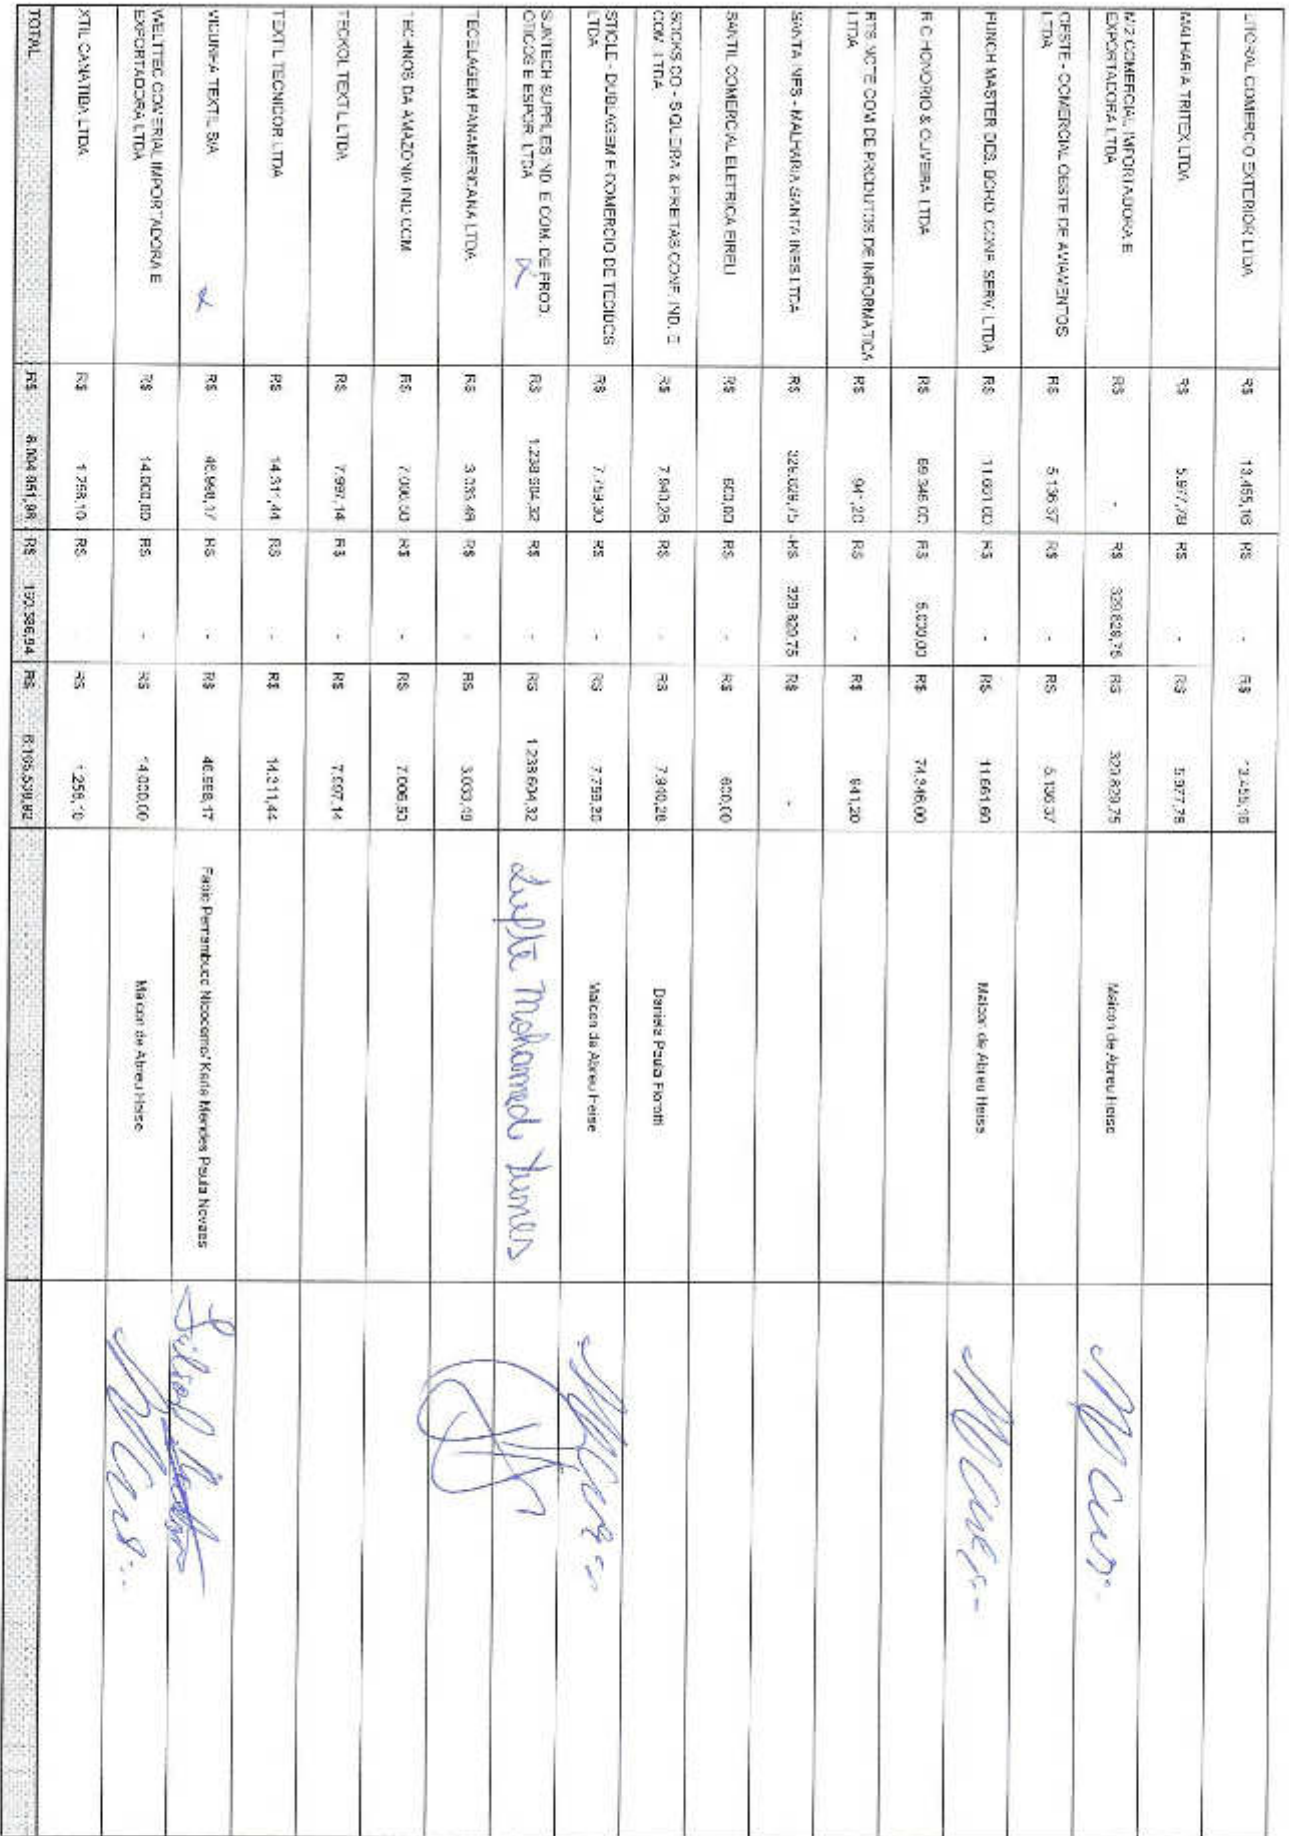 LITORAL COMERCIO EXTERIOR LTDA R$ 13.455,16 R$ - R$ 13.455,16
MALHARIA TRITEX LTDA R$ 5.977,78 R$ - R$ 5.977,78
M2 COMERCIAL IMPORTADORA E
EXPORTADORA LTDA R$ - R$ 329.829,75 R$ 329.829,75 Maicon de Abreu Heise
OESTE - COMERCIAL OESTE DE AVIAMENTOS
LTDA R$ 5.136,37 R$ - R$ 5.136,37
PUNCH MASTER DES. BORD. CONF. SERV. LTDA R$ 11.661,60 R$ - R$ 11.661,60 Maicon de Abreu Heise
R C HONORIO & OLIVEIRA LTDA R$ 69.346,00 R$ 5.000,00 R$ 74.346,00
RTS NOTE COM DE PRODUTOS DE INFORMATICA
LTDA R$ 941,20 R$ - R$ 941,20
SANTA INES - MALHARIA SANTA INES LTDA R$ 329.829,75 -R$ 329.829,75 R$ -
SANTIL COMERCIAL ELETRICA EIRELI R$ 600,00 R$ - R$ 600,00
SOCKS CO - SIQUEIRA & FREITAS CONF. IND. E
COM. LTDA R$ 7.940,28 R$ - R$ 7.940,28 Daniela Paula Fiorotti
STICLE - DUBLAGEM E COMERCIO DE TECIDOS
LTDA R$ 7.759,30 R$ - R$ Maicon de Abreu Heise
SUNTECH SUPPLIES IND. E COM. DE PROD.
OTICOS E ESPOR. LTDA R$ 1.238.604,32 R$ - R$ 1.238.604,32 Mohamed Yunes
TECELAGEM PANAMERICANA LTDA R$ 3.033,49 R$ - R$ 3.033,49
TECHNOS DA AMAZONIA IND COM R$ 7.006,50 R$ - R$ 7.006,50
TECKOL TEXTIL LTDA R$ 7.997,14 R$ - R$ 7.997,14
TEXTIL TECNICOR LTDA R$ 14.311,44 R$ - R$ 14.311,44
VICUNHA TEXTIL S/A R$ 46.998,17 R$ - R$ 46.998,17 Fabio Pernambuco Nicocemo/ Karla Mendes Paula Novaes
WELTTEC COMERIAL IMPORTADORA E
EXPORTADORA LTDA R$ 14.000,00 R$ - R$ 14.000,00 Maicon de Abreu Heise
XTIL CANATIBA LTDA R$ 1.258,10 R$ - R$ 1.258,10
TOTAL R$ R$ R$